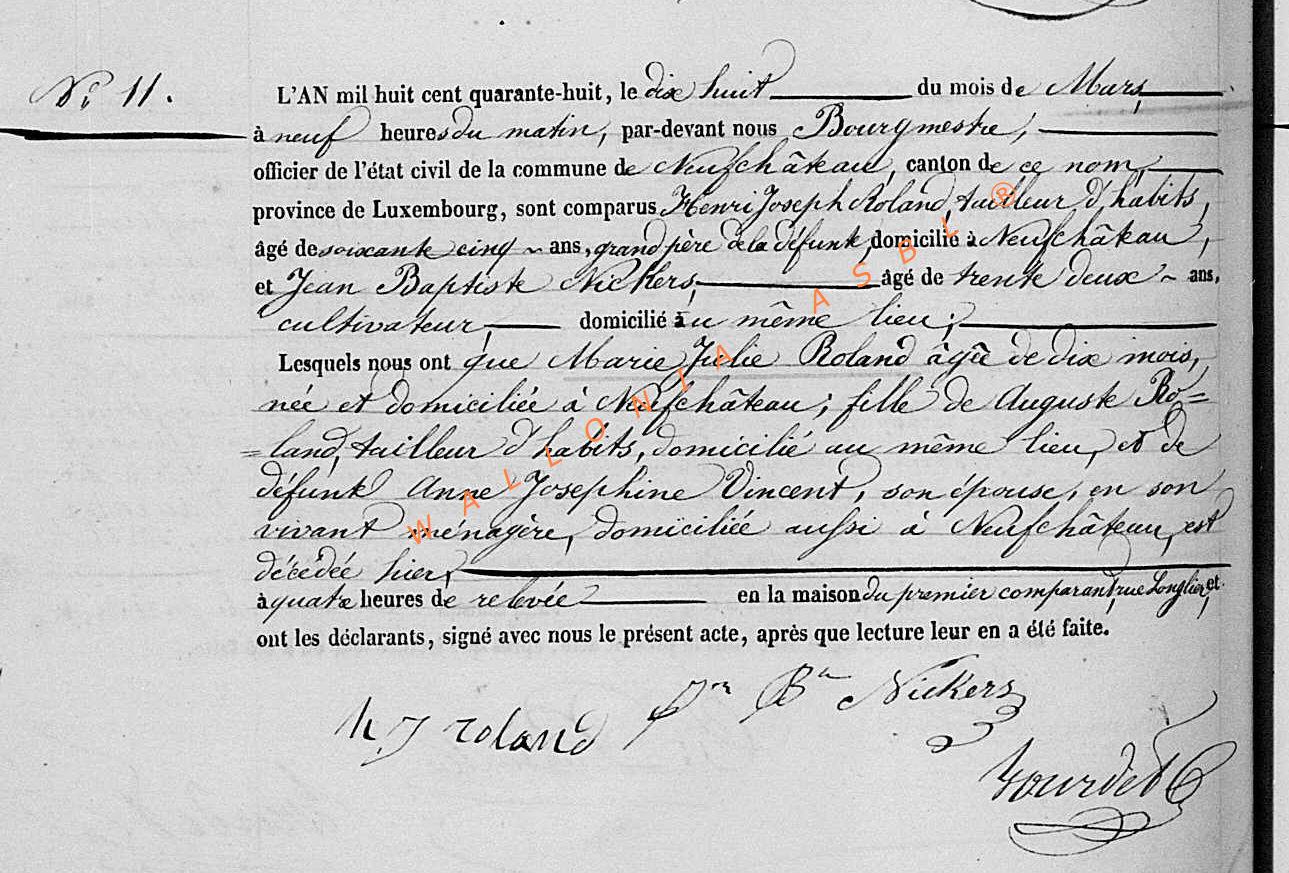 N° 11.
L'AN mil huit cent quarante-huit, le dix huit du mois de Mars,
à neuf heures du matin, par-devant nous Bourgmestre,
officier de l'état civil de la commune de Neufchâteau, canton de ce nom,
province de Luxembourg, sont comparus Henri Joseph Roland, tailleur d'habits,
âgé de soixante cinq ~ ans, grand père de la défunte, domicilié à Neufchâteau,
et Jean Baptiste Nickers, âgé de trente deux ~ ans,
cultivateur, domicilié au même lieu;
Lesquels nous ont que Marie Julie Roland âgée de dix mois,
née et domiciliée à Neufchâteau; fille de Auguste Ro=
=land, tailleur d'habits, domicilié au même lieu, et de
défunte Anne Josephine Vincent, son épouse, en son
vivant ménagère, domiciliée aussi à Neufchâteau, est
décédée hier,
à quatre heures de relevée en la maison du premier comparant, rue Longlier, et
ont les déclarants, signé avec nous le présent acte, après que lecture leur en a été faite.
h J roland Jn Bte Nickers
WALLONIA ASBL ®